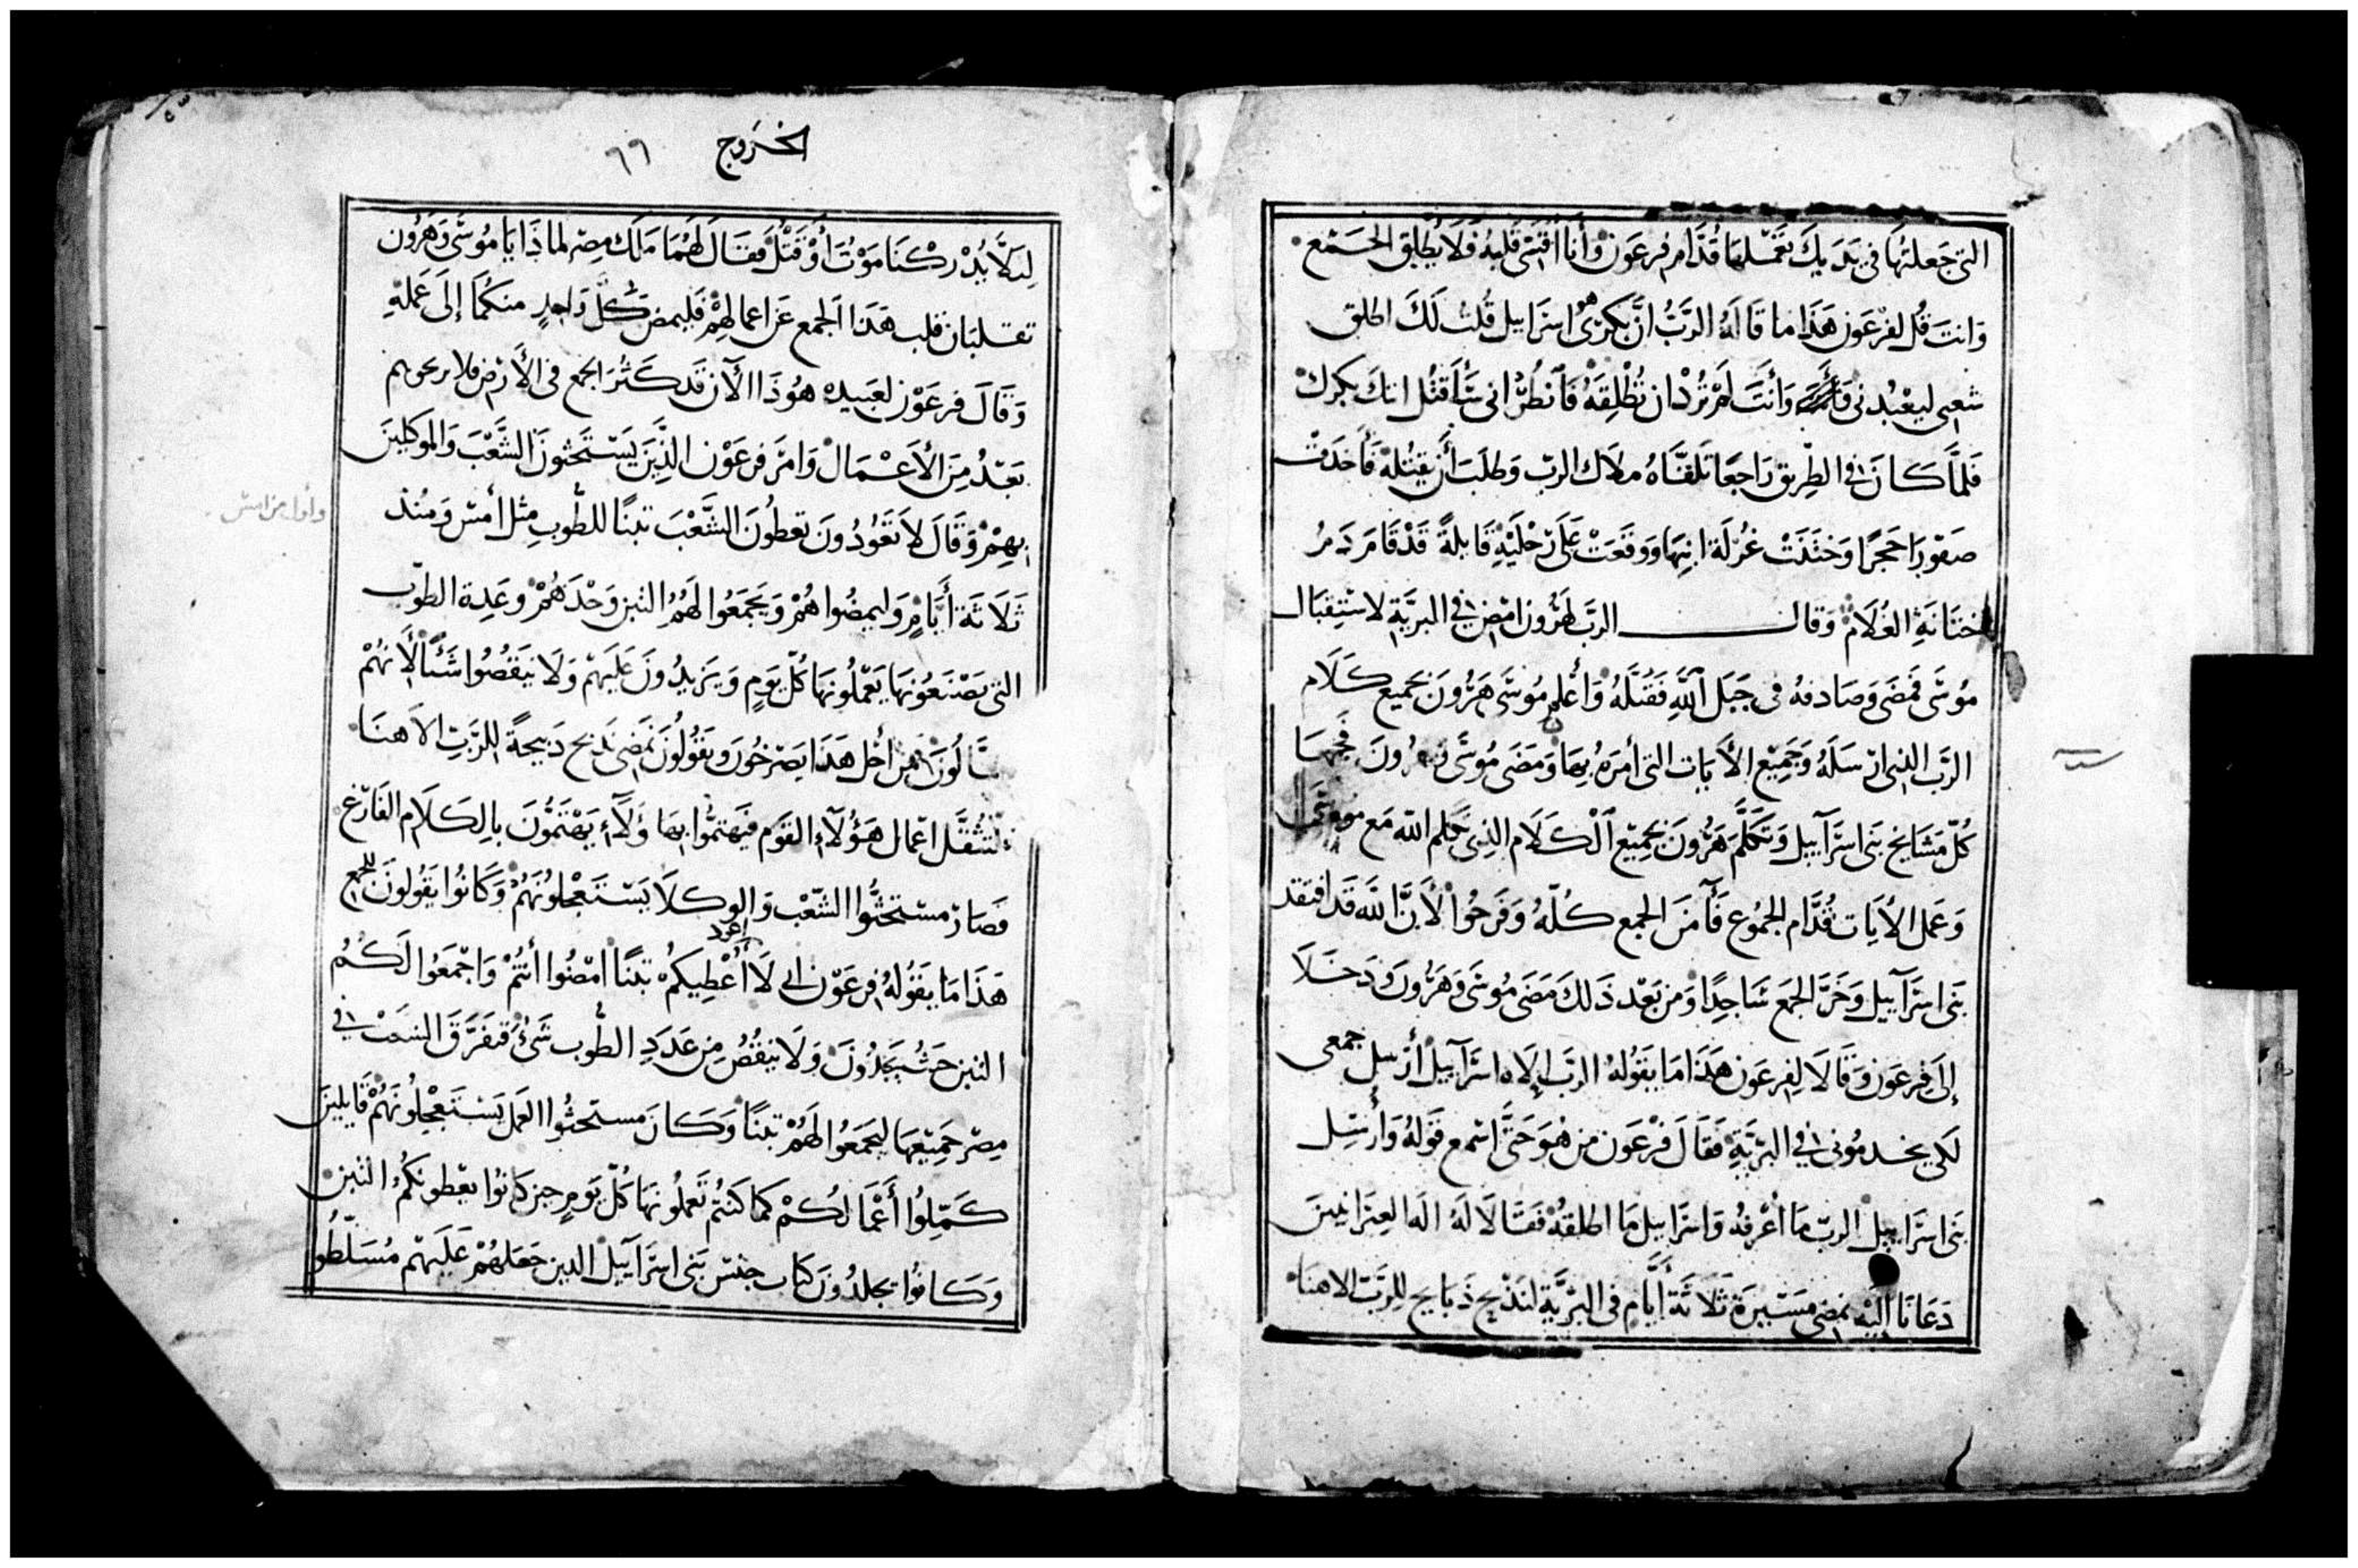 التى جَعلتُها فى يَدَيكَ تعَمَلها قُدَّام فِرعَون وَأنا أقسّى قلبهُ فَلَا يُطلِق الجَمْع
وَانتَ قُل لفرْعَون هَذَا ما قَالهُ الرَّبُّ انَّ بكرى هو اسرَاييل قُلتُ لَكَ اطلق
شعبى ليعْبُدنى وَأنتَ لَمْ تُرْد ان تُطْلِقَهُ فَانظُرْ انى سَأقتُل ابنَكَ بكرك
فَلمَّا كَانَ فى الطِّريق رَاجعًا تلَقَّاهُ ملَاك الربّ وَطلَبَ أن يقتُلهُ فَأخَدَتْ
صَفّورَا حَجرًا وَختَنَتْ غُرْلَة ابنِهَا وَوقَعَتْ عَلَى رْجْلَيْهِ قَايلةً قَدْ قَامَ دَمُ
ختَانَةِ الغُلَامْ وَقالــــ الربّ لهَرُون امْضِ فى البرّيَّةِ لاسْتِقبَال
مُوسَى فمَضَى وَصَادفهُ فى جَبَل اللَّهِ فَقبَّلَهُ وَأعْلم مُوسَى هَرُونَ بجَميع كَلَام
الرَّب الذى ارْسَلَهُ وَجَمِيْع الأَيَات التى أمَرَهُ بِهَا وَمَضَى مُوسَى وهَرُونَ فَجمَعَا
كُلّ مَشَايخ بَنى اسرَآييل وَتَكَلَّمَ هَرُونَ بجَمِيْع الْكَلَام الذِى كَلم اللّه مَع مُوسَى
وَعَمل الأيَات قُدَّام الجمُوع فَآمَنَ الجمع كُلّهُ وَفَرحُوا لأَنَّ اللَّه قَد افتقد
بَنى اسرَآييل وَخَرَّ الجمَع سَاجِدًا وَمن بَعْد ذَلكَ مَضَى مُوسَى وَهَرُونَ وَدَخَلَا
إلَى فِرعَون وَقَالَا لِفِرعَون هَذَا مَا يَقولهُ الربّ إلَاه اسرَآييل أرْسل جمعى
لَكى يخدمُونى فى البرّيَّةِ فَقَالَ فرْعَون مَن هُوَ حَتَّى اسْمع قَولهُ وَأُرْسِل
بَنى اسرَاييل الربّ مَا أعْرفهُ وَاسرَاييل مَا اطلقهُ فَقَالَا لَهُ الَه العِبرَانيينَ
دَعَانَا اليْهِ نمضى مَسِيْرَة ثَلَاثَة أيَّام فى البرّيَّةِ لنَذْبح ذَبَايح للِرَّبّ الاهنَا
الخُرَوج ٦٦
لِيَلَّا يُدْركنَا مَوْتُ أوْ قَتْلْ فَقَالَ لَهُمَا مَلَك مِصْر لماذَا يَا مُوسَى وَهَرُون
تقلبَان قلب هَذَا الجمع عَن اعمالهِمْ فَليمضِ كُلّ وَاحِدٍ منكُمَا إلَى عَمَلهِ
وَقَالَ فرعَوْن لعَبيده هُوَذَا الآن قَد كَثُرَ الجمع فى الأَرْض فلا
بَعْدُ مِنَ الأعْمَال وَامَرَ فرعَوْن الذِّينَ يَسْتَحثونَ الشَّعْبَ وَالموكلينَ
بهِمْ وَقَالَ لَا تَعُودُونَ تعطُونَ الشَّعْبَ تبنًا للطُّوبِ مثل أمْسْ وَمُنْذ
ثَلَاثَة أيَّامٍ وَليمضُوا هُمْ وَيجَمَعُوا لَهُمُ التبن وَحْدَهُمْ وَعَدِة الطوّب
التى يَصْنَعُونهَا يَعْمَلُونهَا كُلّ يَوْمٍ وَيَزيدُونَ عَلَيهمْ وَلَا ينَقُصُوا شَئًا لأَنهُمْ
مِن أجْل هَذَا يَصْرَخُونَ وَيقَولُونَ نمَضى نَذبح دَبيحةً للرَّبِّ الَاهنَا
اعمال هَؤُلَآءِ القَوم فيهتمُّوا بهَا وَلَآ يَهْتَمُّونَ بالِكَلَام الفَارْغ
فصَارَ مستحثُّوا الشّعْب وَالوكلَا يَسْتَعْجلونهُمْ وَكَانوُا يَقُولونَ للجمع
هَذَا مَا يقَولهُ فرعَوْن لَا أعُود أُعْطِيكُمْ تبنًا امْضُوا أنتُمْ وَاجْمَعُوا لَكُمُ
التبن حَيثُ تجَدُونَ وَلَا ينقُصُ مِن عَدَدِ الطُّوب شَىُ فتفَرَّقَ الشعبْ فى
مِصْر جَمِيْعهَا ليجَمَعُوا لَهُمْ تبنًا وَكَانَ مستحثُوا العَمل يَسْتَعْجِلُونهُمْ قَايلينَ
كَمّلِوُا أعْمَالَكُمْ كمَا كنتُم تَعملُونهَا كُلّ يَومٍ حين كَانُوا يعْطونكُمُ التبن
وَكَانوُا يجلدُونَ كتاب جنسْ بَنى اسرَآييل الدين جَعَلهُمْ عَلَيهمْ مُسَلّطُو